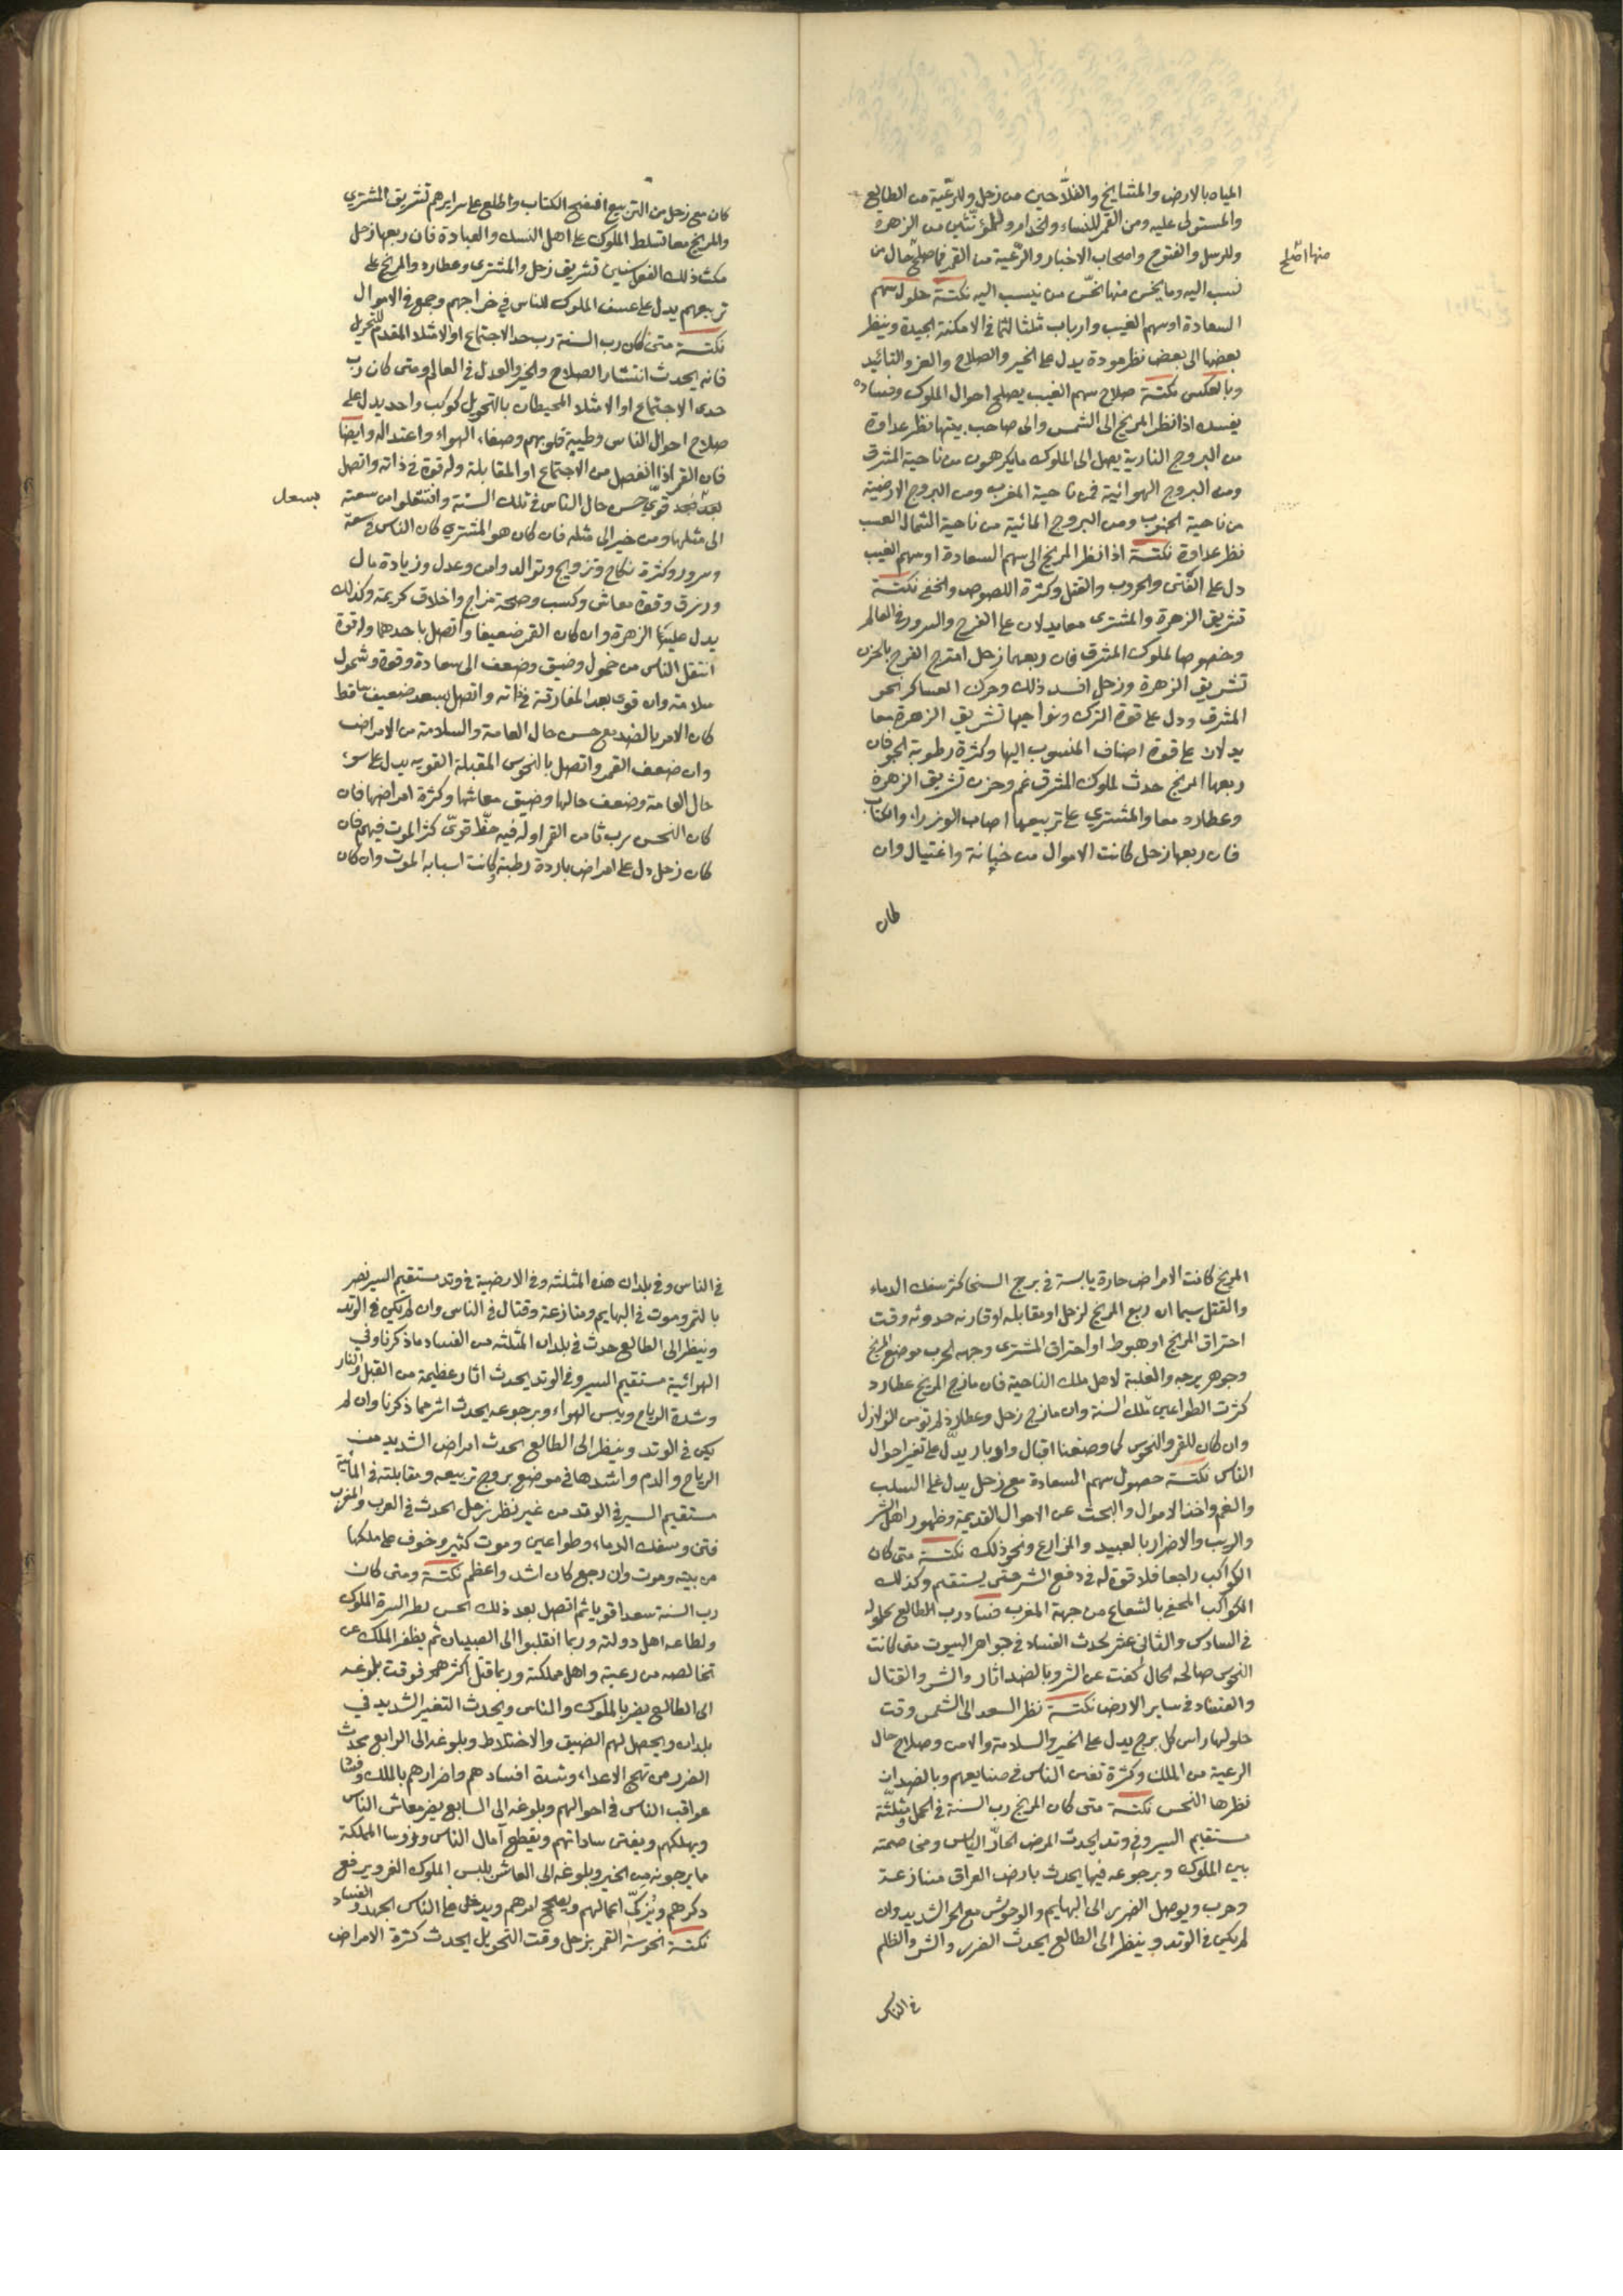 المياه بالارض والمشايخ والفلّاحين من زحل وللرعّية من الطالع
والمستولى عليه ومن القمر للنساء والخدام وللمؤنثين من الزهرة
وللرسل والفتوح واصحاب الاخبار والرعّية من القمر فما صلح حال من
منها اصلح
نسب اليه وما يخس منها نحّس من ينسب اليه نكتـة حلول سهم
السعادة او سهم الغيب وارباب مثلثاتها فى الامكنة الجيدة وينظر
بعضها الى بعض نظر مودة يدل على الخير والصلاح والعز والتائيد
وبالعكس نكتـة صلاح سهم الغيب يصلح احوال الملوك وفساده
يفسد اذا نظر المريخ الى الشمس والى صاحب بيتها نظر عداوة
من البروج النارية يصل الى الملوك ما يكرهون من ناحية المشرق
ومن البروج الهوائية فمن ناحية المغرب ومن البروج الارضية
من ناحية الجنوب ومن البروج المائية من ناحية الشمال
نظر عداوة نكتـة اذا نظر المريخ الى سهم السعادة او سهم الغيب
دل على الفتن والحروب والقتل وكثرة اللصوص والخفى نكتـة
تشريق الزهرة والمشترى معا يدلان على الفرح والسرور فى العالم
وخصوصا لملوك المشرق فان ربعهما زحل امتزج الفرح بالحزن
تشريق الزهرة وزحل افسد ذلك وحرك العساكر نحو
المشرق ودل على قوة الترك ونواحيها تشريق الزهرة معا
يدلان على قوة اصناف المنسوب اليها وكثرة رطوبة الجو فان
ربعها المريخ حدث لملوك المشرق غم وحزن تشريق الزهرة
وعطارد معا والمشتري على تربيعها اصاب الوزراء والكتاب
فان ربعها زحل كانت الاموال من خيانة واغتيال وان
كان
كان مع زحل من التربيع افتضح الكتاب واطلع على سرايرهم تشريق المشترى
والمريخ معا تسلط الملوك على اهل النسك والعبادة فان ربعها زحل
مكث ذلك الفعل سنين تشريق زحل والمشترى وعطارد والمريخ على
تربيعهم يدل على عسف الملوك للناس في خراجهم وجمع فى الاموال
نكتـة متى كان رب السنة رب حد الاجتماع او الامتلا المقدم للتحويل
فانه يحدث انتشار الصلاح والخير والعدل فى العالم ومتى كان رب
حدى الاجتماع او الامتلا المحيطان بالتحويل كوكب واحد يدل على
صلاح احوال الناس وطيبة قلوبهم وصفاء الهواء واعتداله وايضا
فان القمر اذا انفصل من الاجتماع او المقابلة وله قوة فى ذاته واتصل
بعد سعد قويّ حسن حال الناس فى تلك السّنة وانتقلوا من سعته
بسعد
الى مثلها ومن خير الى مثله فان كان هو المشتري كان الناس فى سعة
وسرور وكثرة نكاح وتزويج وتوالد وامن وعدل وزيادة مال
ورزق وقوة معاش وكسب وصحة مزاج واخلاق كريمة وكذلك
يدل عليها الزهرة وان كان القمر ضعيفا واتصل باحدهما وله قوة
انتقل الناس من خمول وضيق وضعف الى سعادة وقوة وشمول
سلامة وان قوى بعد المفارقة فى ذاته واتصل بسعد ضعيف ساقط
كان الامر بالضد مع حسن حال العامة والسلامة من الامراض
وان ضعف القمر واتصل بالنحوس المقبلة القوية يدل على سوء
حال العامة وضعف حالها وضيق معاشها وكثرة امراضها فان
كان النحس رب ثامن القمر او له فيه حظّ قويّ كثر الموت فيهم فان
كان زحل دل على امراض باردة رطبة وكانت اسبابه الموت وان كان
المريخ كانت الامراض حارة يابسة فى برج السنخا كثر سفك الدماء
والقتل سيما ان ربع المريخ لزحل او مقابله او قارنه حدوثه وقت
احتراق المريخ او هبوط او احتراق المشترى وجهه الحرب موضع المريخ
وجوهر برجه والغلبة لاهل ملك الناحية فان مازج المريخ عطارد
كثرت الطواعين تلك السنة وان مازج زحل وعطارد لم تومن الزلازل
وان كان للقمر والنحوس كما وصفنا اقبال وادبار يدلّ على تغير احوال
الناس نكتـة حصول سهم السعادة مع زحل يدل على السلب
والغم واخذ الاموال والبحث عن الاموال القديمة وظهور اهل الشر
والريب والاضرار بالعبيد والمزارع ونحو ذلك نكتـة متى كان
الكواكب راجعا فلا قوة له فى دفع الشر حتى يستقيم وكذلك
الكواكب المحفى بالشعاع من جهة المغرب فساد رب الطالع بحلوله
فى السادس والثانى عشر يحدث الفساد فى جواهر البيوت متى كانت
النحوس صالحه الحال كفت عن الشر وبالضد اثار والشر والقتال
والفساد فى ساير الارض نكتـة نظر السعد الى الشمس وقت
حلولها راس كل برج يدل على الخير والسلامة والامن وصلاح حال
الرعية من الملك وكثرة تفنن الناس فى صنايعهم وبالضد ان
نظرها النحس نكتـة متى كان المريخ رب السنة فى الحمل ومثلثة
مستقيم السير وفى وتد يحدث المرض الحادّ اليابس ومخاصمته
بين الملوك وبرجوعه فيها يحدث بارض العراق منازعة
وحرب ويوصل الضرر الى البهايم والوحوش مع الحر الشديد وان
لم يكن فى الوتد وينظر الى الطالع يحدث الضرر والشر والظلم
فى الناس
فى الناس وفى بلدان هذه المثلثه وفى الارضية فى وتد مستقيم السير
بالثمر وموت فى البهايم ومنازعة وقتال فى الناس وان لم يكن فى الوتد
وينظر الى الطالع حدث فى بلدان المثلثه من الفساد ما ذكرنا وفي
الهوائية مستقيم السير وفى الوتد يحدث اثار عظيمة من القبل والنار
وشدة الرياح ويبس الهواء وبرجوعه يحدث اشر مما ذكرنا وان لم
يكن فى الوتد وينظر الى الطالع يحدث امراض الشديد من
الرياح والدم واشدها فى موضع بروج تربيعه ومقابلته فى المائية
مستقيم السير فى الوتد من غير نظر زحل يحدث فى العرب والمغرب
فتن وسفك الدماء وطواعين وموت كثير وخوف على ملكها
من بيته وموت وان رجع كان اشد واعظم نكتـة ومتى كان
رب السنة سعدا قويا ثم اتصل بعد ذلك لسرة الملوك
ولطاعه اهل دولته وربما انقلبوا الى العصيان ثم يظفر الملك عن
تخالصه من رعيته واهل مملكته وربما قتل اكثرهم فوقت بلوغه
الى الطالع يضر بالملوك والناس ويحدث التغير الشديد في
بلدان ويحصل لهم الضيق والاختلاط وبلوغه الى الرابع يحدث
الضرر من تهيج الاعداء وشدة افسادهم واضرارهم بالملك
عواقب الناس فى احوالهم وبلوغه الى السابع يضر معاش الناس
ويهلكهم ويفتن ساداتهم ويقطع آمال الناس المملكة
ما يرجونه من الخير وبلوغه الى العاشر يلبس الملوك الغر ويرفع
ذكرهم ويُزكّى اعمالهم ويصلح امرهم ويدخل على الناس الجهد والفساد
نكتـة نحوسة القمر بزحل وقت التحويل يحدث كثرة الامراض